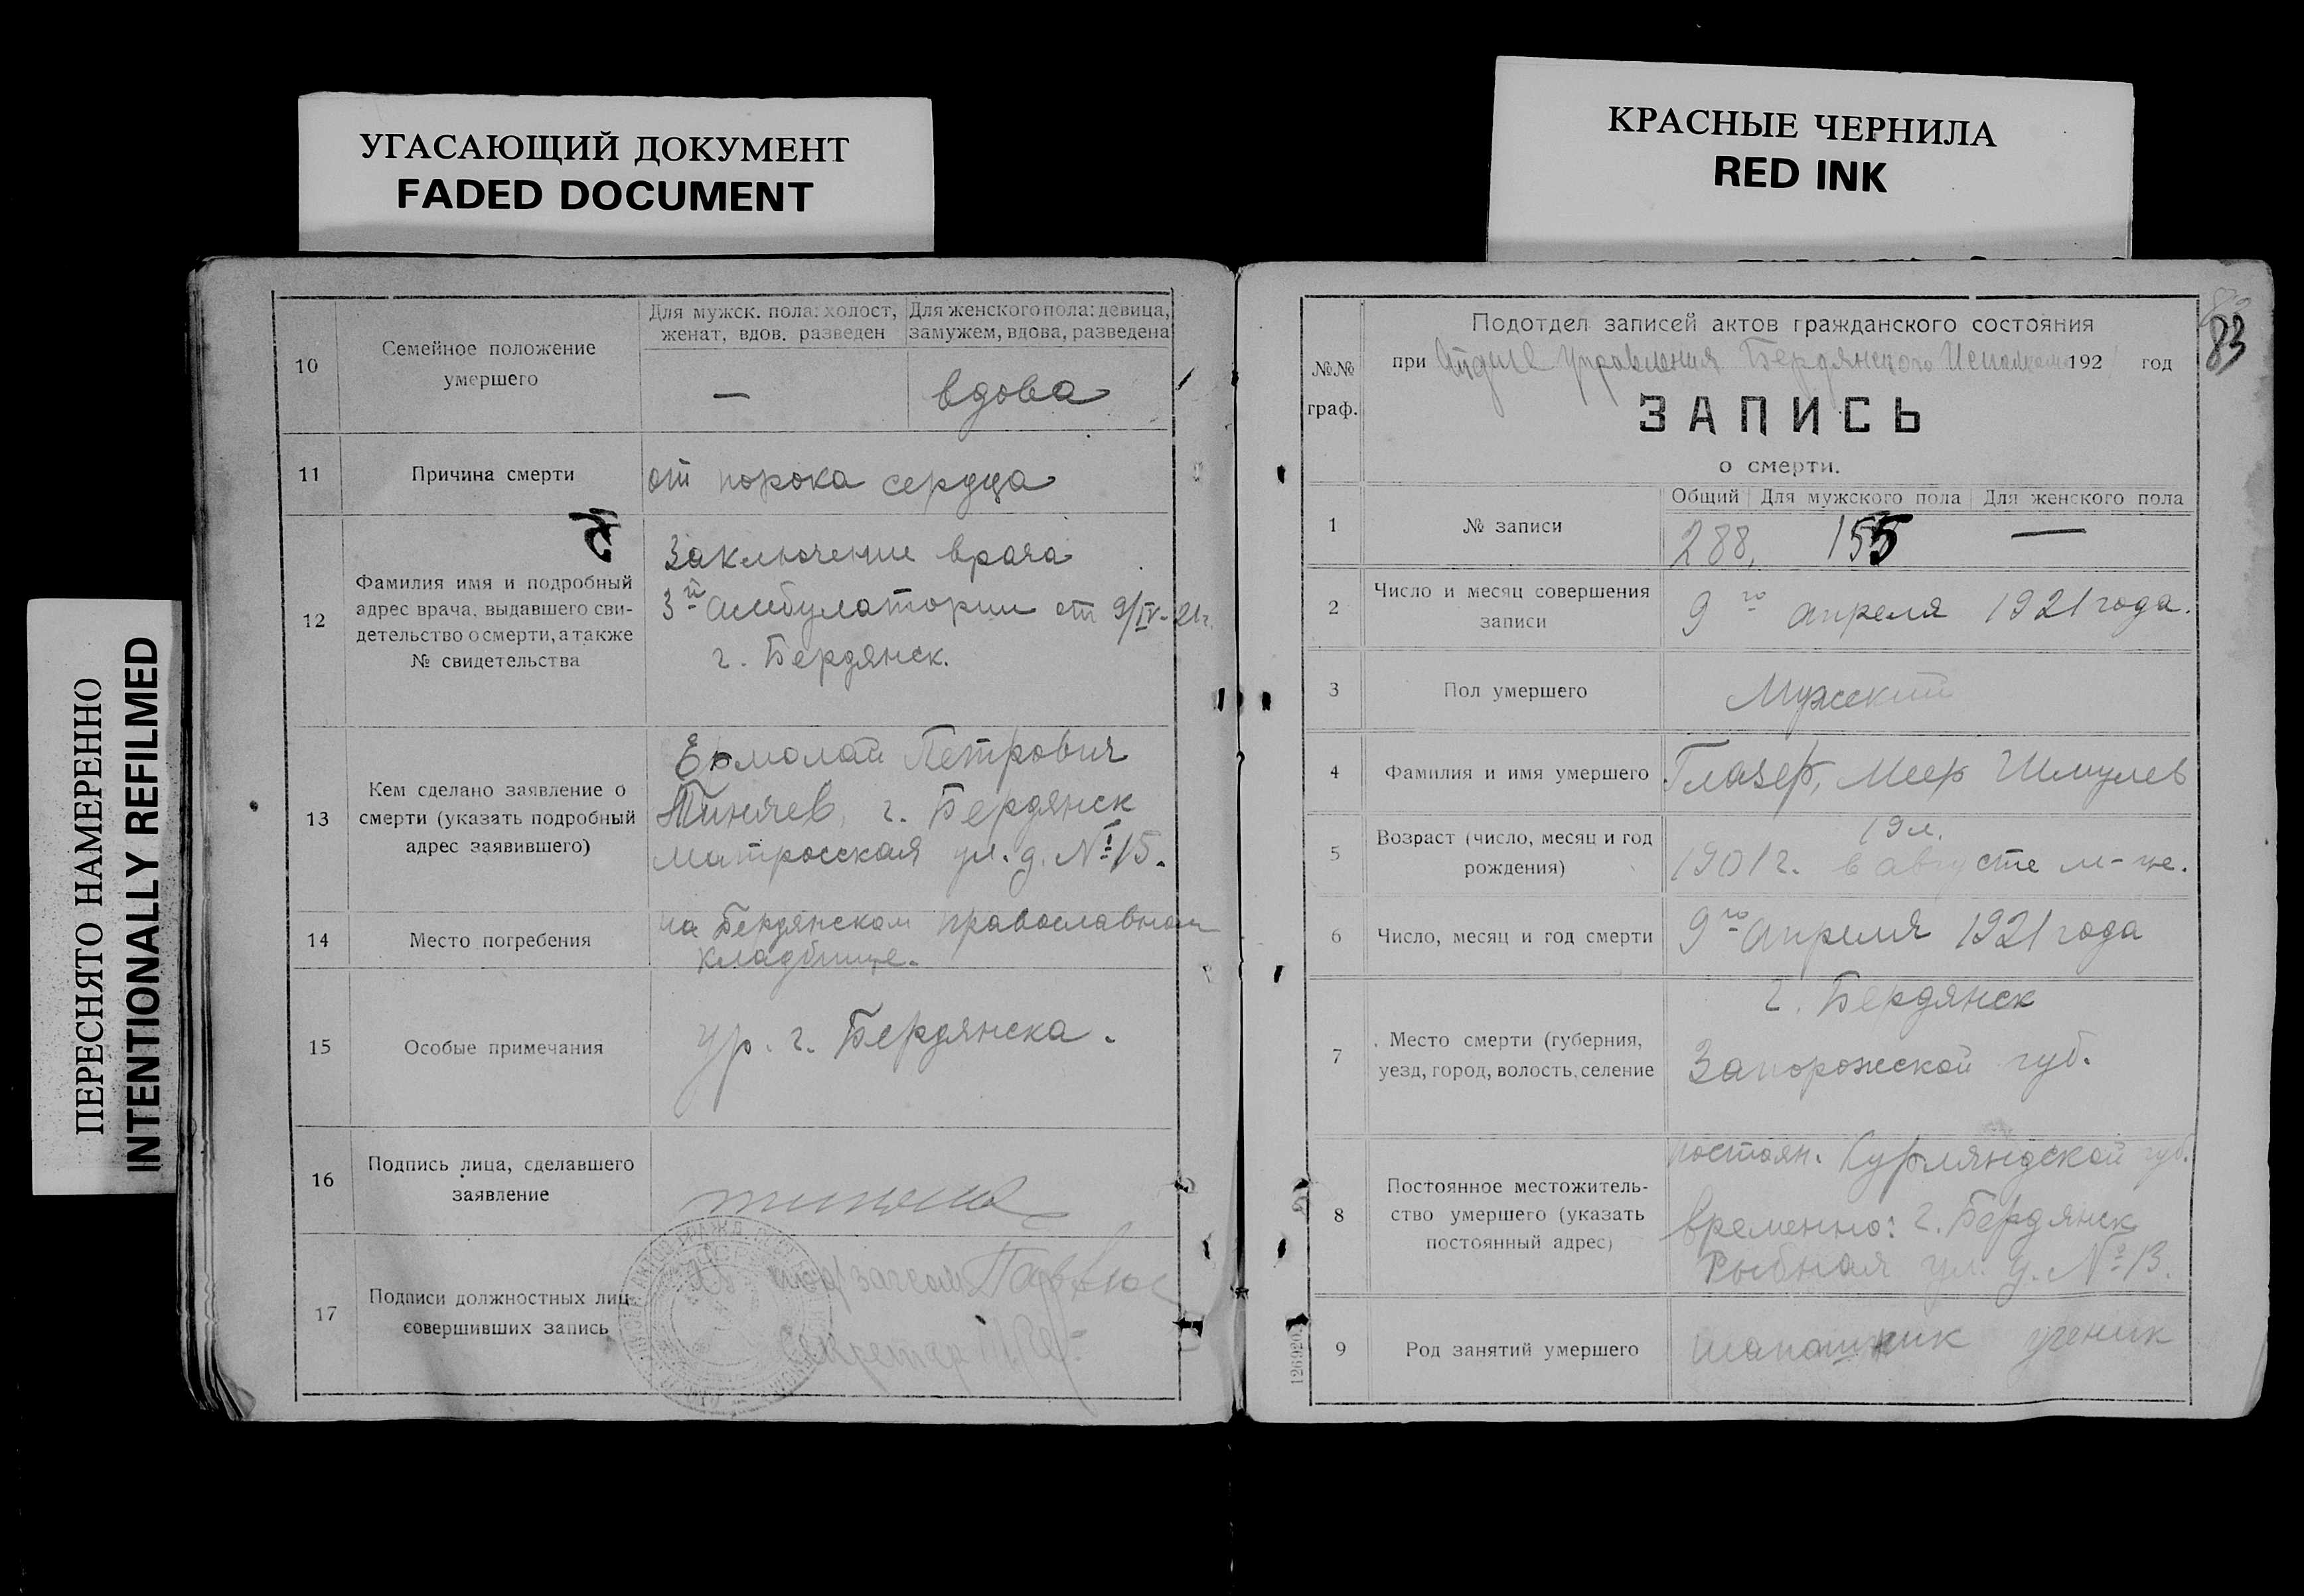 УГАСАЮЩИЙ ДОКУМЕНТ
FADED DOCUMENT
КРАСНЫЕ ЧЕРНИЛА
RED INK
ПЕРЕСНЯТО НАМЕРЕННО
INTENTIONALLY REFILMED
10
Семейное положение
умершего
Для мужск. пола: холост,
женат, вдов. разведен
Для женского пола: девица,
замужем, вдова, разведена
—
вдова
11
Причина смерти
от порока сердца
12
Фамилия имя и подробный
адрес врача, выдавшего сви-
детельство о смерти, а также
№ свидетельства
Заключение врача
3й амбулатории от 9/IV-21г.
г. Бердянск.
13
Кем сделано заявление о
смерти (указать подробный
адрес заявившего)
Ермолай Петрович
Тиняев, г. Бердянск
Матросская ул. д. № 15.
14
Место погребения
на Бердянском православном
кладбище.
15
Особые примечания
Ур. г. Бердянска.
16
Подпись лица, сделавшего
заявление
17
Подписи должностных лиц
совершивших запись
Секретар
83
№№
граф.
Подотдел записей актов гражданского состояния
при Отделе Управления Бердянского Исполкома 192 год
ЗАПИСЬ
о смерти.
1
№ записи
Общий
Для мужского пола
Для женского пола
288,
155
—
2
Число и месяц совершения
записи
9го апреля 1921 года.
3
Пол умершего
Мужский
4
Фамилия и имя умершего
Глазер, Меер Шмулев
5
Возраст (число, месяц и год
рождения)
19 л.
1901 г. в августе м-це.
6
Число, месяц и год смерти
9го Апреля 1921 года
7
Место смерти (губерния,
уезд, город, волость, селение
г. Бердянск
Запорожской губ.
8
Постоянное местожитель-
ство умершего (указать
постоянный адрес)
постоян. Курляндской губ.
временно: г. Бердянск
Рыбная ул. д. № 13.
9
Род занятий умершего
шапашник ученик
126920